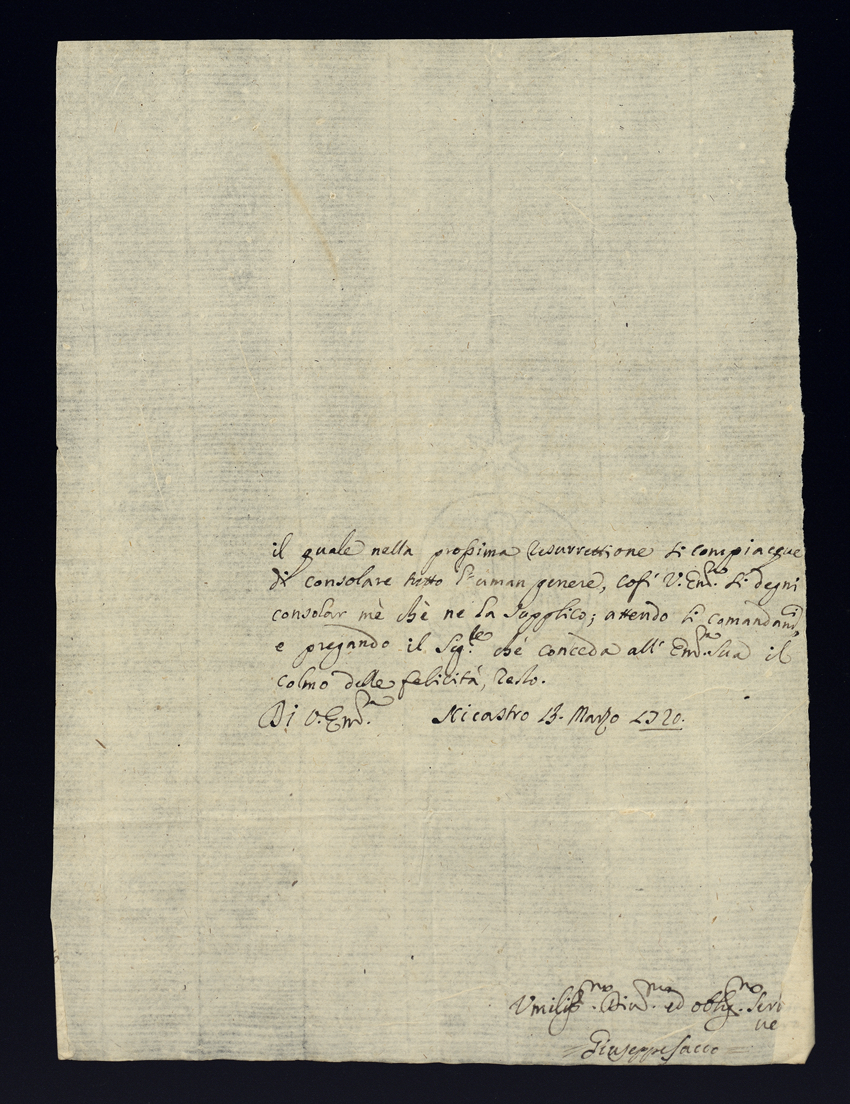 il quale nella prossima Resurrettione si compiacque
di consolare tutto l'uman genere, così V. Em.za si degni
consolar mè chè ne la supplico; attendo si comandam.ti
e pregando il Sig.re chè conceda all' Em.za Sua il
colmo delle felicità, resto.
Di V. Em.za Nicastro 13. Marzo 1720.
Umiliss.mo Div.mo ed oblig.mo Serv
re
Giuseppe Sacco